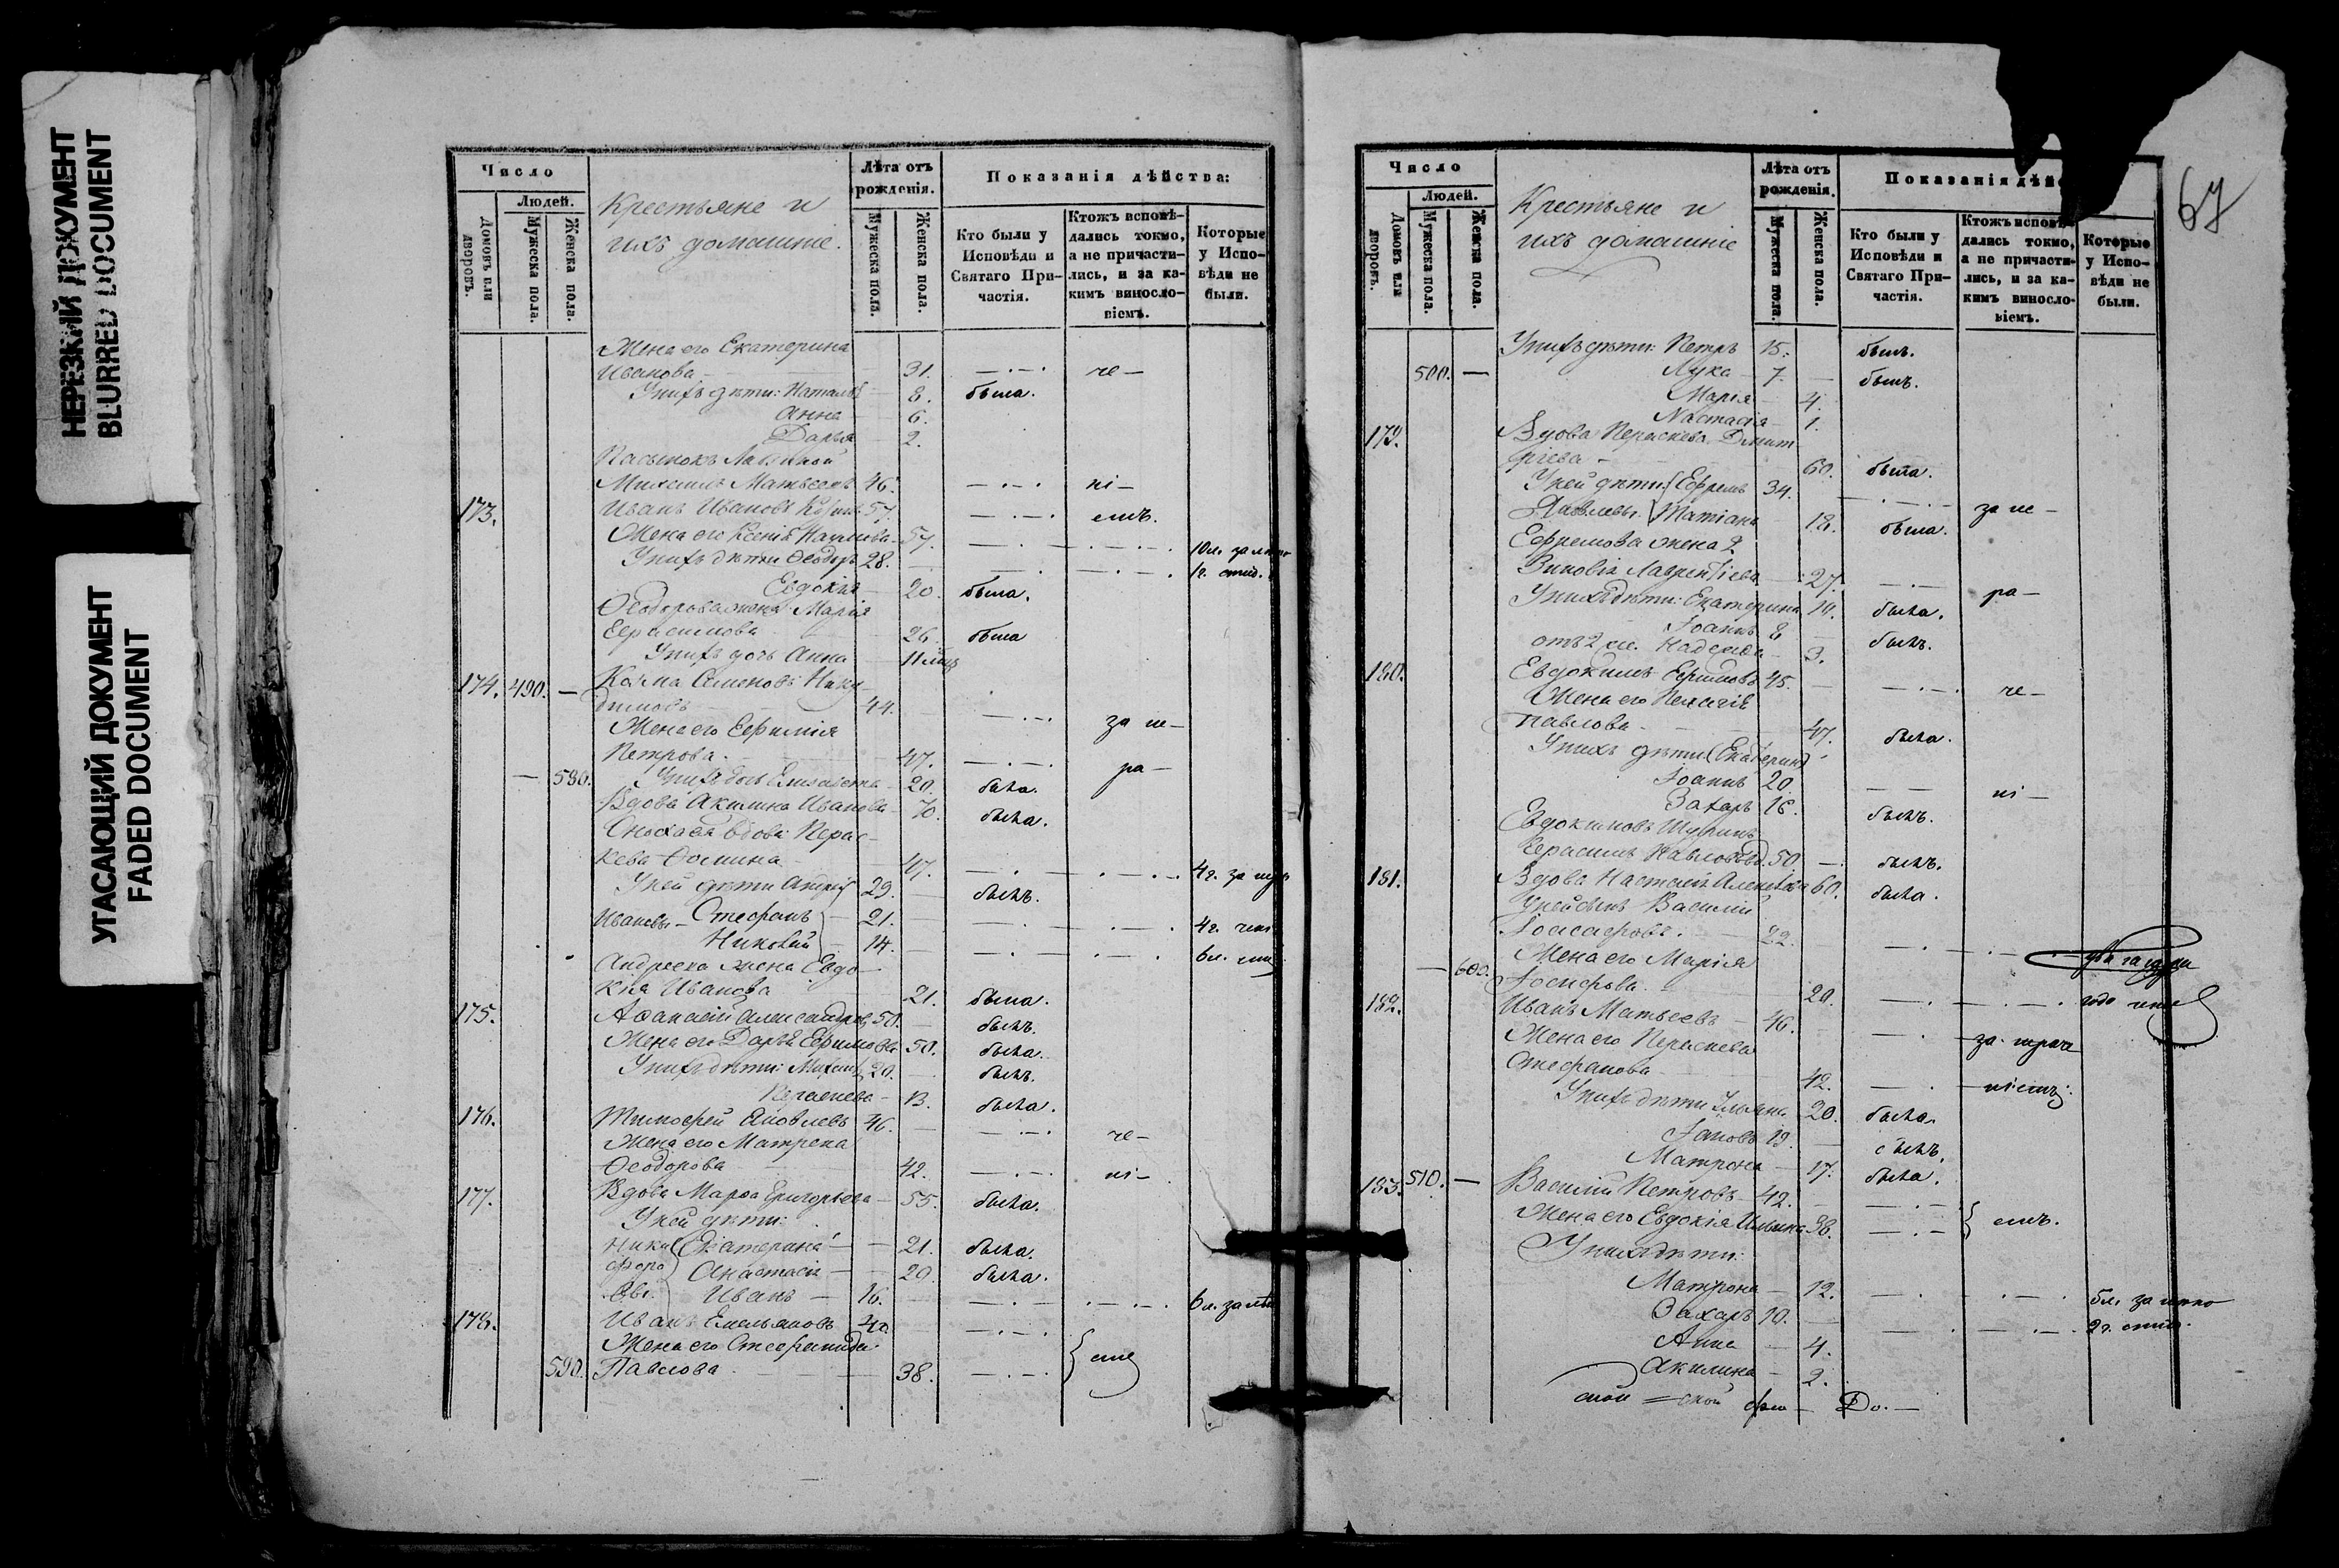 НЕРЕЗКИЙ ДОКУМЕНТ
BLURRED DOCUMENT
УГАСАЮЩИЙ ДОКУМЕНТ
FADED DOCUMENT
Число
Людей.
Домовъ или дворовъ.
Мужеска пола.
Женска пола.
Крестьяне и
ихъ домашніе.
Лѣта отъ рожденія.
Мужеска пола.
Женска пола.
Показанія дѣйства:
Кто были у Исповѣди и Святаго Причастія.
Ктожъ исповѣдались токмо, а не причастились, и за какимъ винословіемъ.
Которые у Исповѣди не были.
Жена его Екатерина
Иванова — 31. —.—. че—
У нихъ дѣти: Наталія — 8. была.
Анна — 6.
Дарья — 2.
Пасынокъ
Михаилъ Матвеевъ 46. —.—. ні—
173. Иванъ Ивановъ 57. —.—. емъ.
Жена его Ксенія Наумова 57.
У нихъ дѣти Ѳеодоръ 28.
Евдокія — 20. была.
Ѳеодорова жена Марія
Герасимова — 26. была
У нихъ дочь Анна — 11 мѣс
174. 490. — Козма Семеновъ Нику
димовъ — 44. —.—. за не—
Жена его Ефимія
Петрова — 47. —.—. ра—
— 580. У нихъ дочь Елисавета — 20. была.
Вдова Акилина Иванова — 70. была.
Сноха ея вдова Перас—
кева Ѳомина — 47. 4 г.
У ней дѣти Андрей 29. — былъ.
Ивановы — Стефанъ — 21. 4 г.
Николай — 14.
Андреева жена Евдо—
кія Иванова — 21. была.
175. Аѳанасій Александровъ 50. — былъ.
Жена его Дарья Ефимова 50. была.
У нихъ дѣти: Михаилъ 20. — былъ.
Параскева — 13. была.
176. Тимофей Яковлевъ 46. — —.—. че—
Жена его Матрена
Ѳеодорова — 42. —.—. ні—
177. Вдова Марѳа Григорьева — 55. была.
У ней дѣти:
Ники Екатерина — 21. была.
форо Анастасія — 20. была.
вы. Иванъ — 16.
178. Иванъ Емельяновъ 40. —.—.
Жена его Стефанида
590. Павлова — 38. —.—. емъ
67
Число
Людей.
Домовъ или дворовъ.
Мужеска пола.
Женска пола.
Крестьяне и
ихъ домашніе
Лѣта отъ рожденія.
Мужеска пола.
Женска пола.
Показанія дѣйс
Кто были у Исповѣди и Святаго Причастія.
Ктожъ исповѣдались токмо, а не причастились, и за какимъ винословіемъ.
Которые у Исповѣди не были.
У нихъ дѣти: Петръ 15. былъ.
500. — Лука — 7. — былъ.
Марія — 4.
Настасія — 1.
179. Вдова Пераскева Дмит
ріева — 60. была.
У ней дѣти: Ефремъ 34. —.—. за не—
Яковлевы. Татіана 18. была.
Ефремова жена 2
Зиновія Лаврентіева — 27. —.— ра—
У нихъ дѣти: Екатерина 10. была.
Іоаннъ 8 — былъ.
отъ 2 ж. Надежда — 3.
180. Евдокимъ Ефимовъ 45. — —.—. че—
Жена его Пелагія
Павлова — 47. была.
У нихъ дѣти (Екатерина)
Іоаннъ 20. — — ні—
Захаръ 18. былъ.
Евдокимовъ Шуринъ
Герасимъ Павловъ 50 — былъ.
181. Вдова Настасія Алексѣева 60. была.
У ней сынъ Василій
Іоасафовъ. — 22.
Жена его Марія
— 600. Іосифова. — 20.
182. Иванъ Матвеевъ — 46. за приче
Жена его Пераскева
Стефанова — 42. ніемъ.
У нихъ дѣти Ульяна 20. была.
Іаковъ 19. — былъ.
Матрона — 17. была.
183. 510. — Василій Петровъ — 42. —.—.
Жена его Евдокія Ильина 38. —.—. емъ.
У нихъ дѣти:
Матрона — 12.
Захаръ 10. — 2 г.
Анна — 4.
Акилина — 2.
ской — До.—